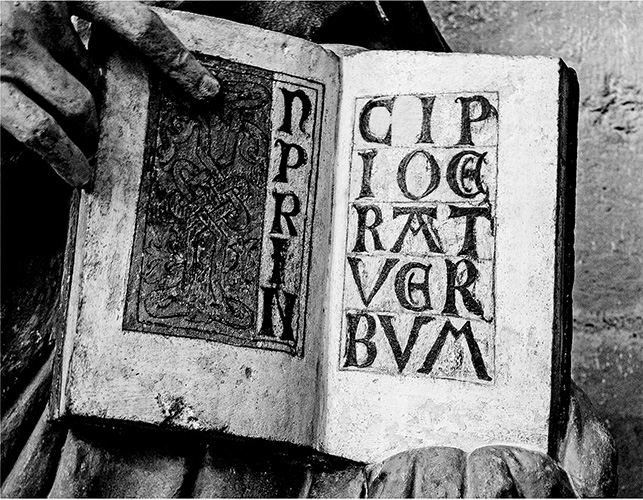 NPRIN
CIP
IOE
RAT
VER
BVM